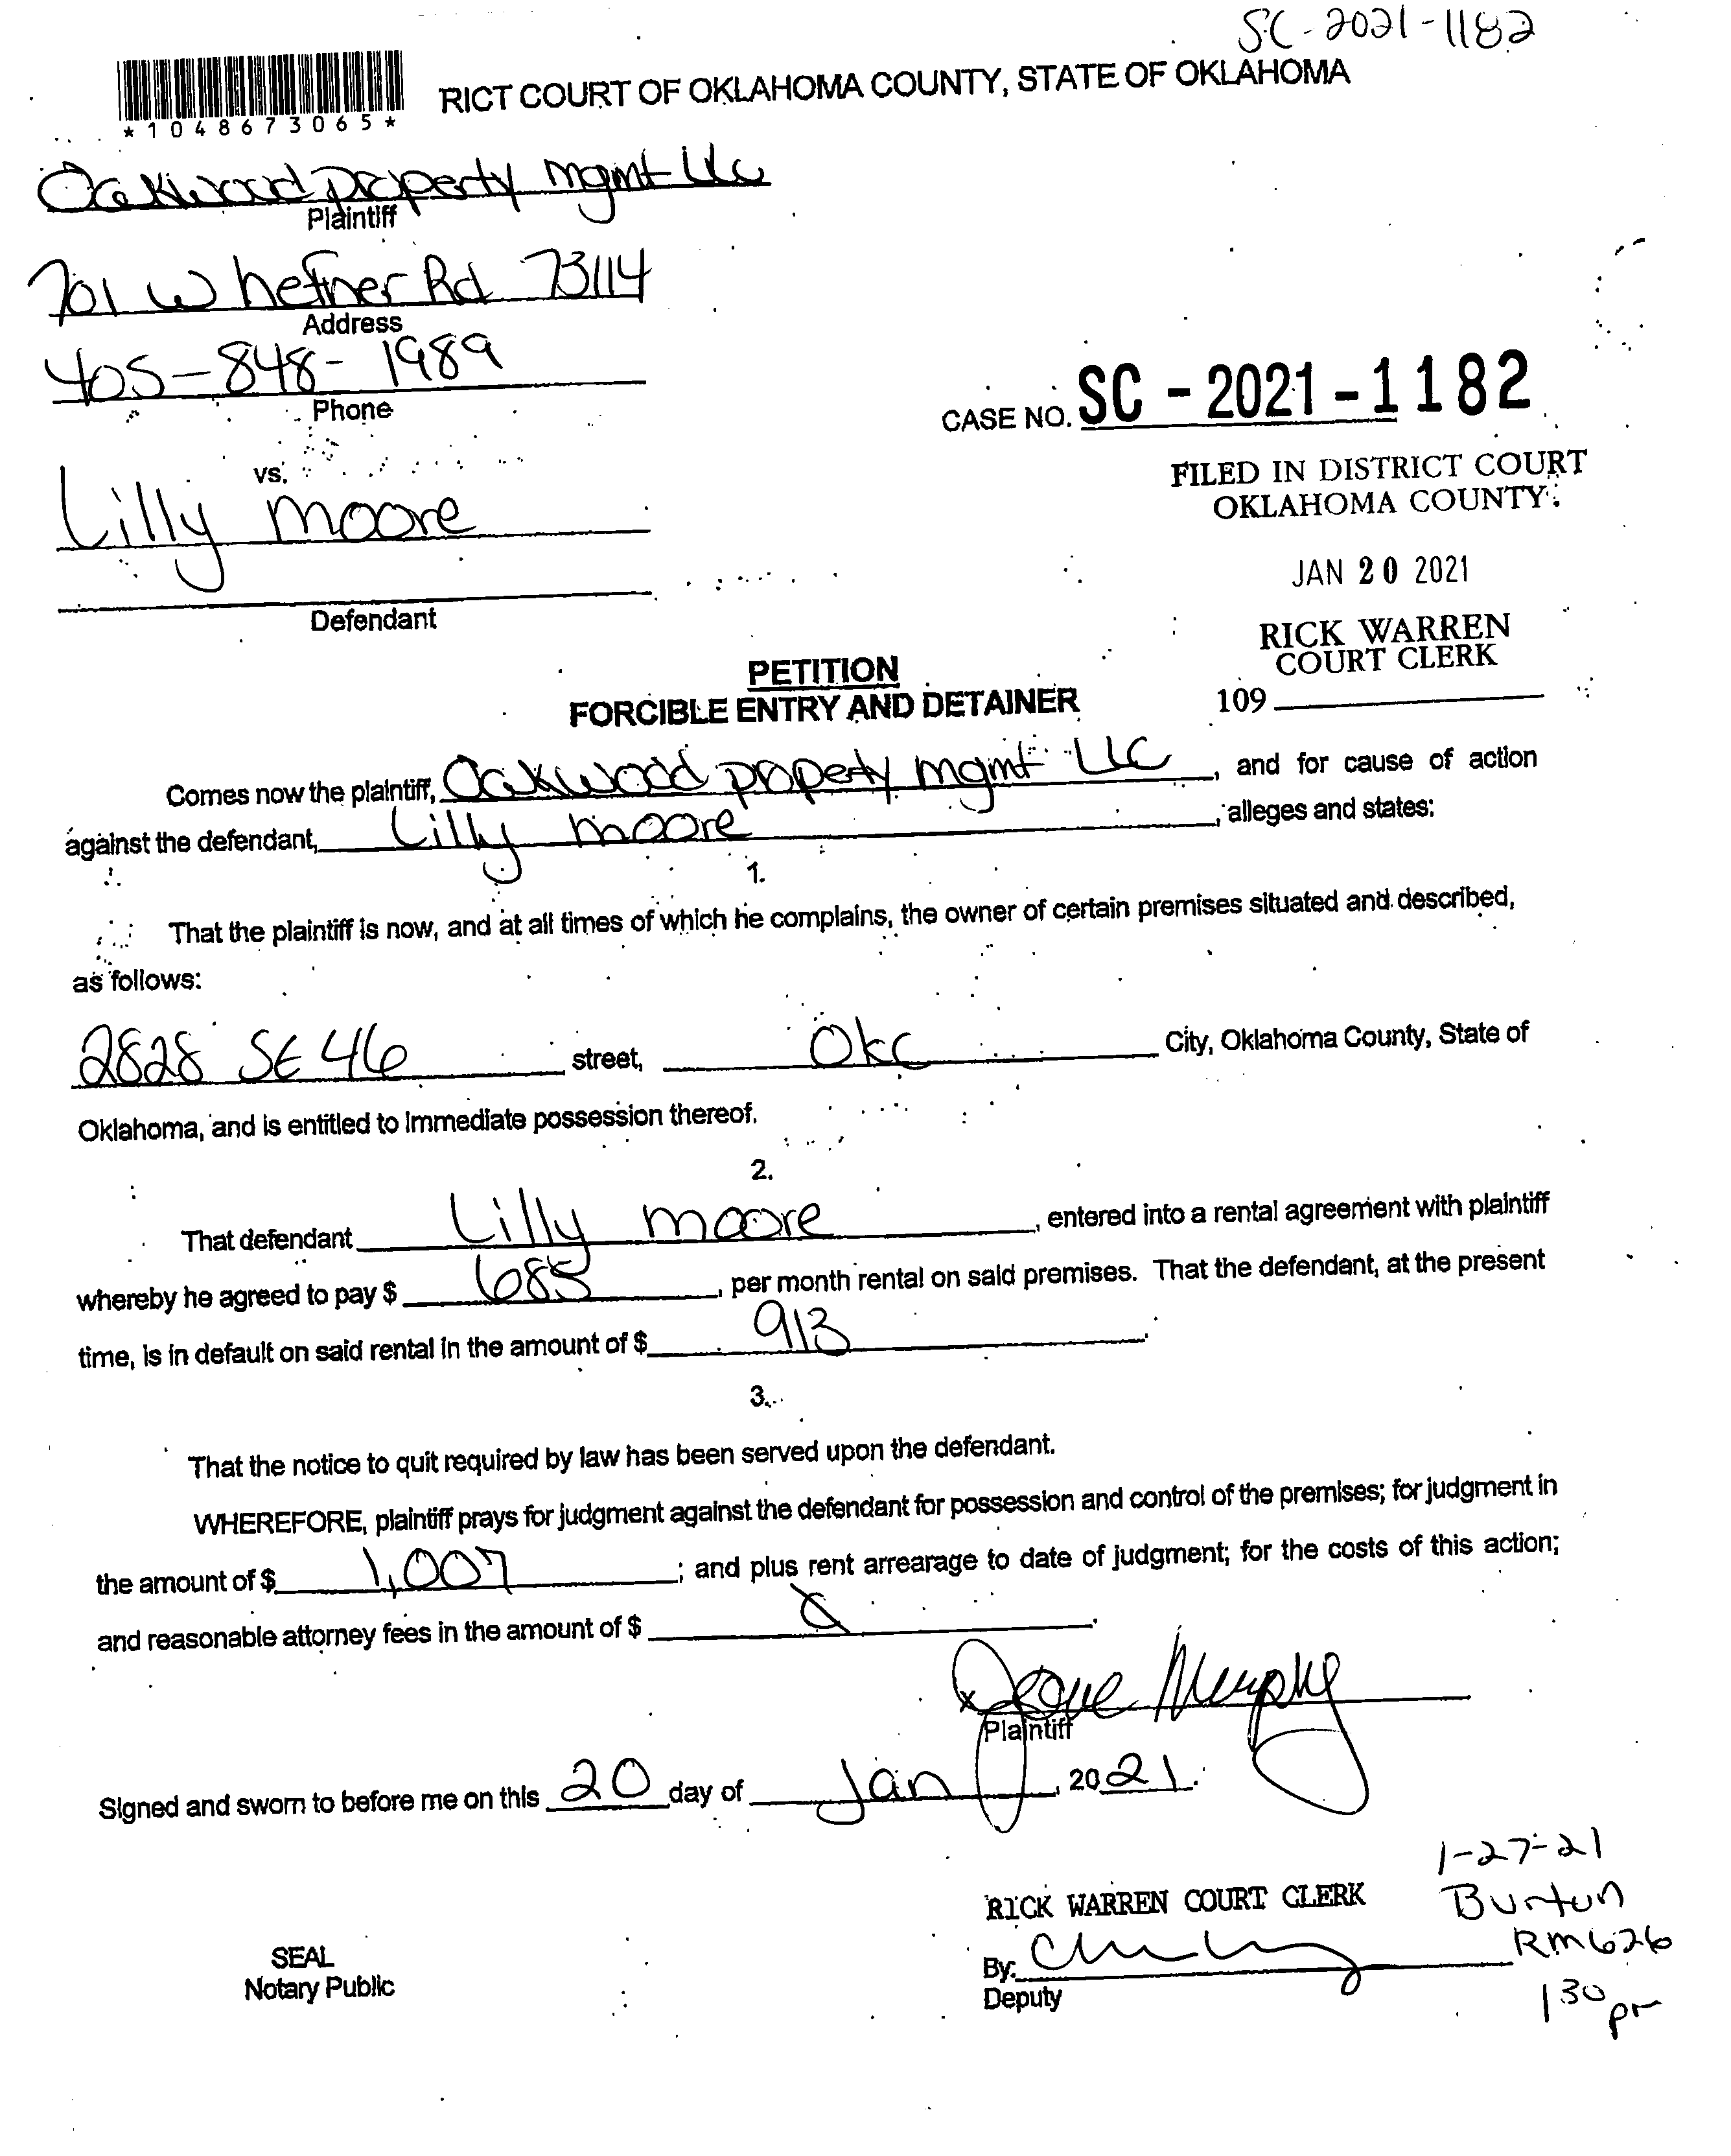 SC-2021-1182
*1048673065*
RICT COURT OF OKLAHOMA COUNTY, STATE OF OKLAHOMA
Oakwood property mgmt LLC
Plaintiff
701 W hefner Rd 73114
Address
405-848-1989
Phone
CASE NO. SC - 2021 - 1182
vs.
FILED IN DISTRICT COURT
OKLAHOMA COUNTY
Lilly moore
JAN 20 2021
Defendant
RICK WARREN
COURT CLERK
109
PETITION
FORCIBLE ENTRY AND DETAINER
Comes now the plaintiff, Oakwood property mgmt LLC, and for cause of action
against the defendant, Lilly moore, alleges and states:
1.
That the plaintiff is now, and at all times of which he complains, the owner of certain premises situated and described,
as follows:
2828 SE 46 street, Okc City, Oklahoma County, State of
Oklahoma, and is entitled to immediate possession thereof.
2.
That defendant Lilly moore, entered into a rental agreement with plaintiff
whereby he agreed to pay $ 685, per month rental on said premises. That the defendant, at the present
time, is in default on said rental in the amount of $ 913.
3.
That the notice to quit required by law has been served upon the defendant.
WHEREFORE, plaintiff prays for judgment against the defendant for possession and control of the premises; for judgment in
the amount of $ 1,007; and plus rent arrearage to date of judgment; for the costs of this action;
and reasonable attorney fees in the amount of $
x Murphy
Plaintiff
Signed and sworn to before me on this 20 day of Jan, 2021.
1-27-21
RICK WARREN COURT CLERK
Burton
RM 626
SEAL
By:
Notary Public
Deputy
130 pm